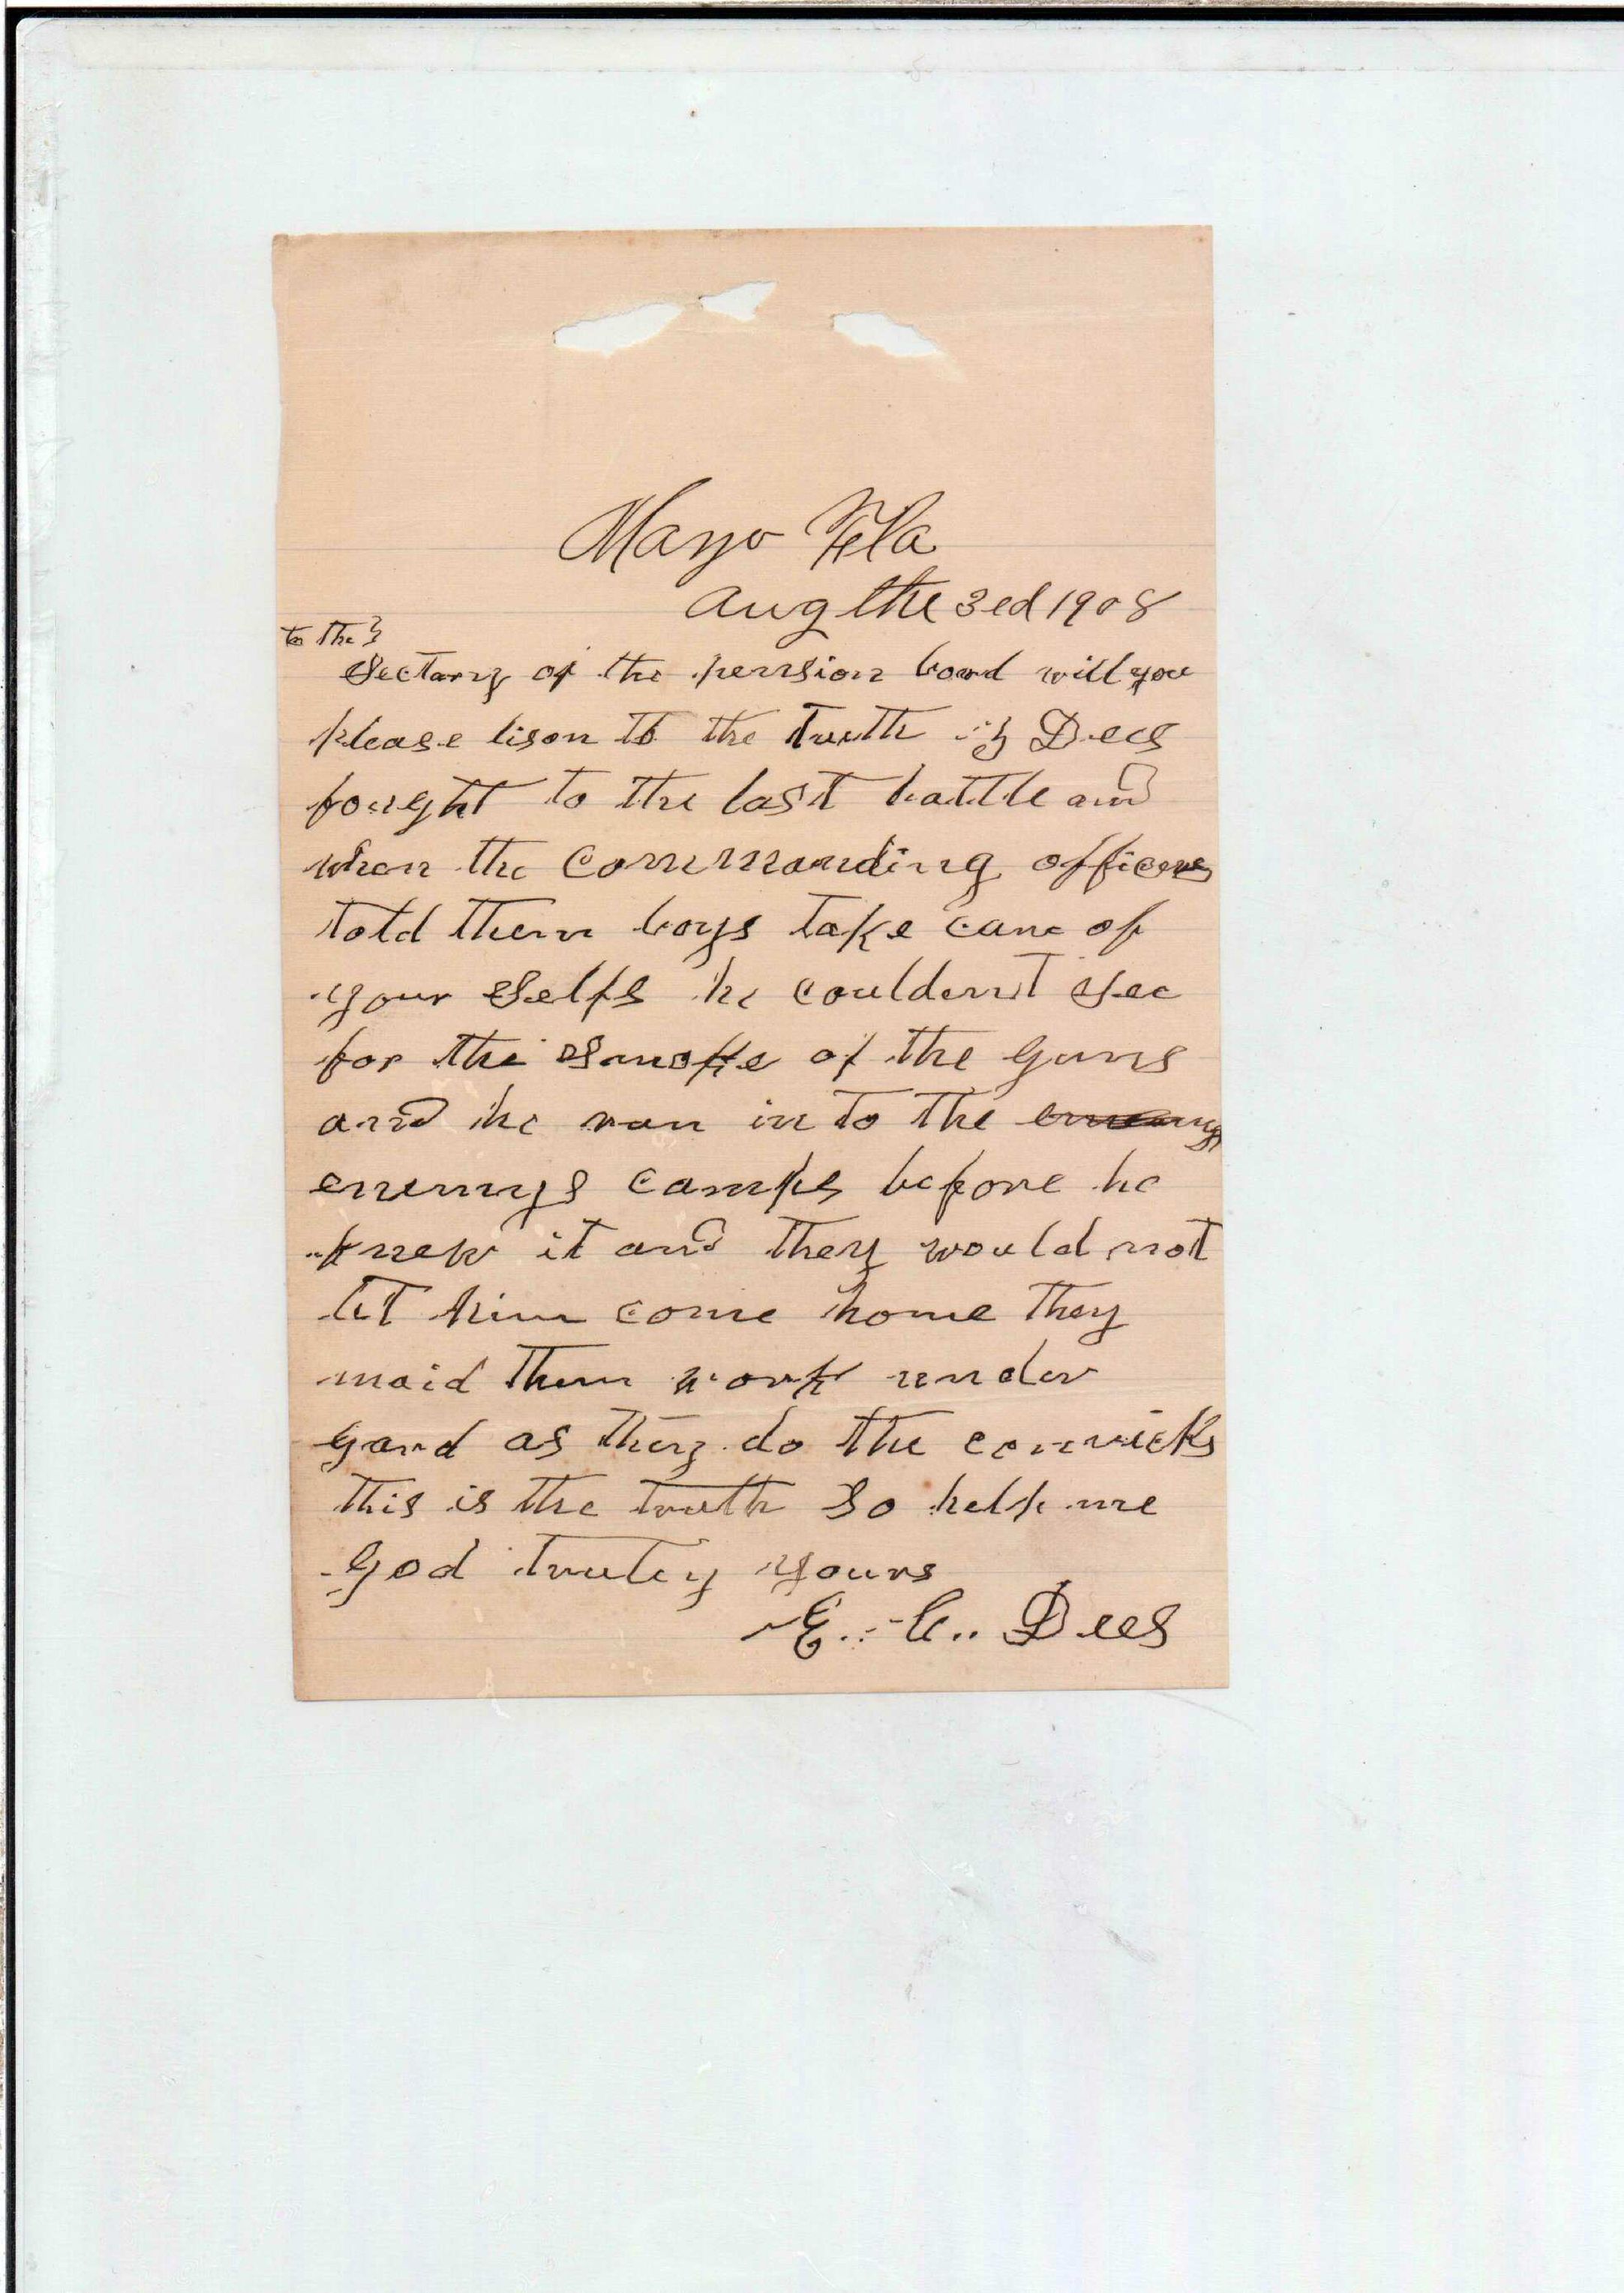 Mayo Fla
Aug the 3ed 1908
to the }
Sectary of the pension bord will you
please lison to the truth Dees
fought to the last battle and
when the commanding officers
told them boys take care of
your selfs he couldent see
for the smoke of the guns
and he ran in to the enemy
enemys camps before he
knew it and they would not
let him come home they
maid them work under
gard as they do the convicks
this is the truth so help me
God truley yours
E. C. Dees